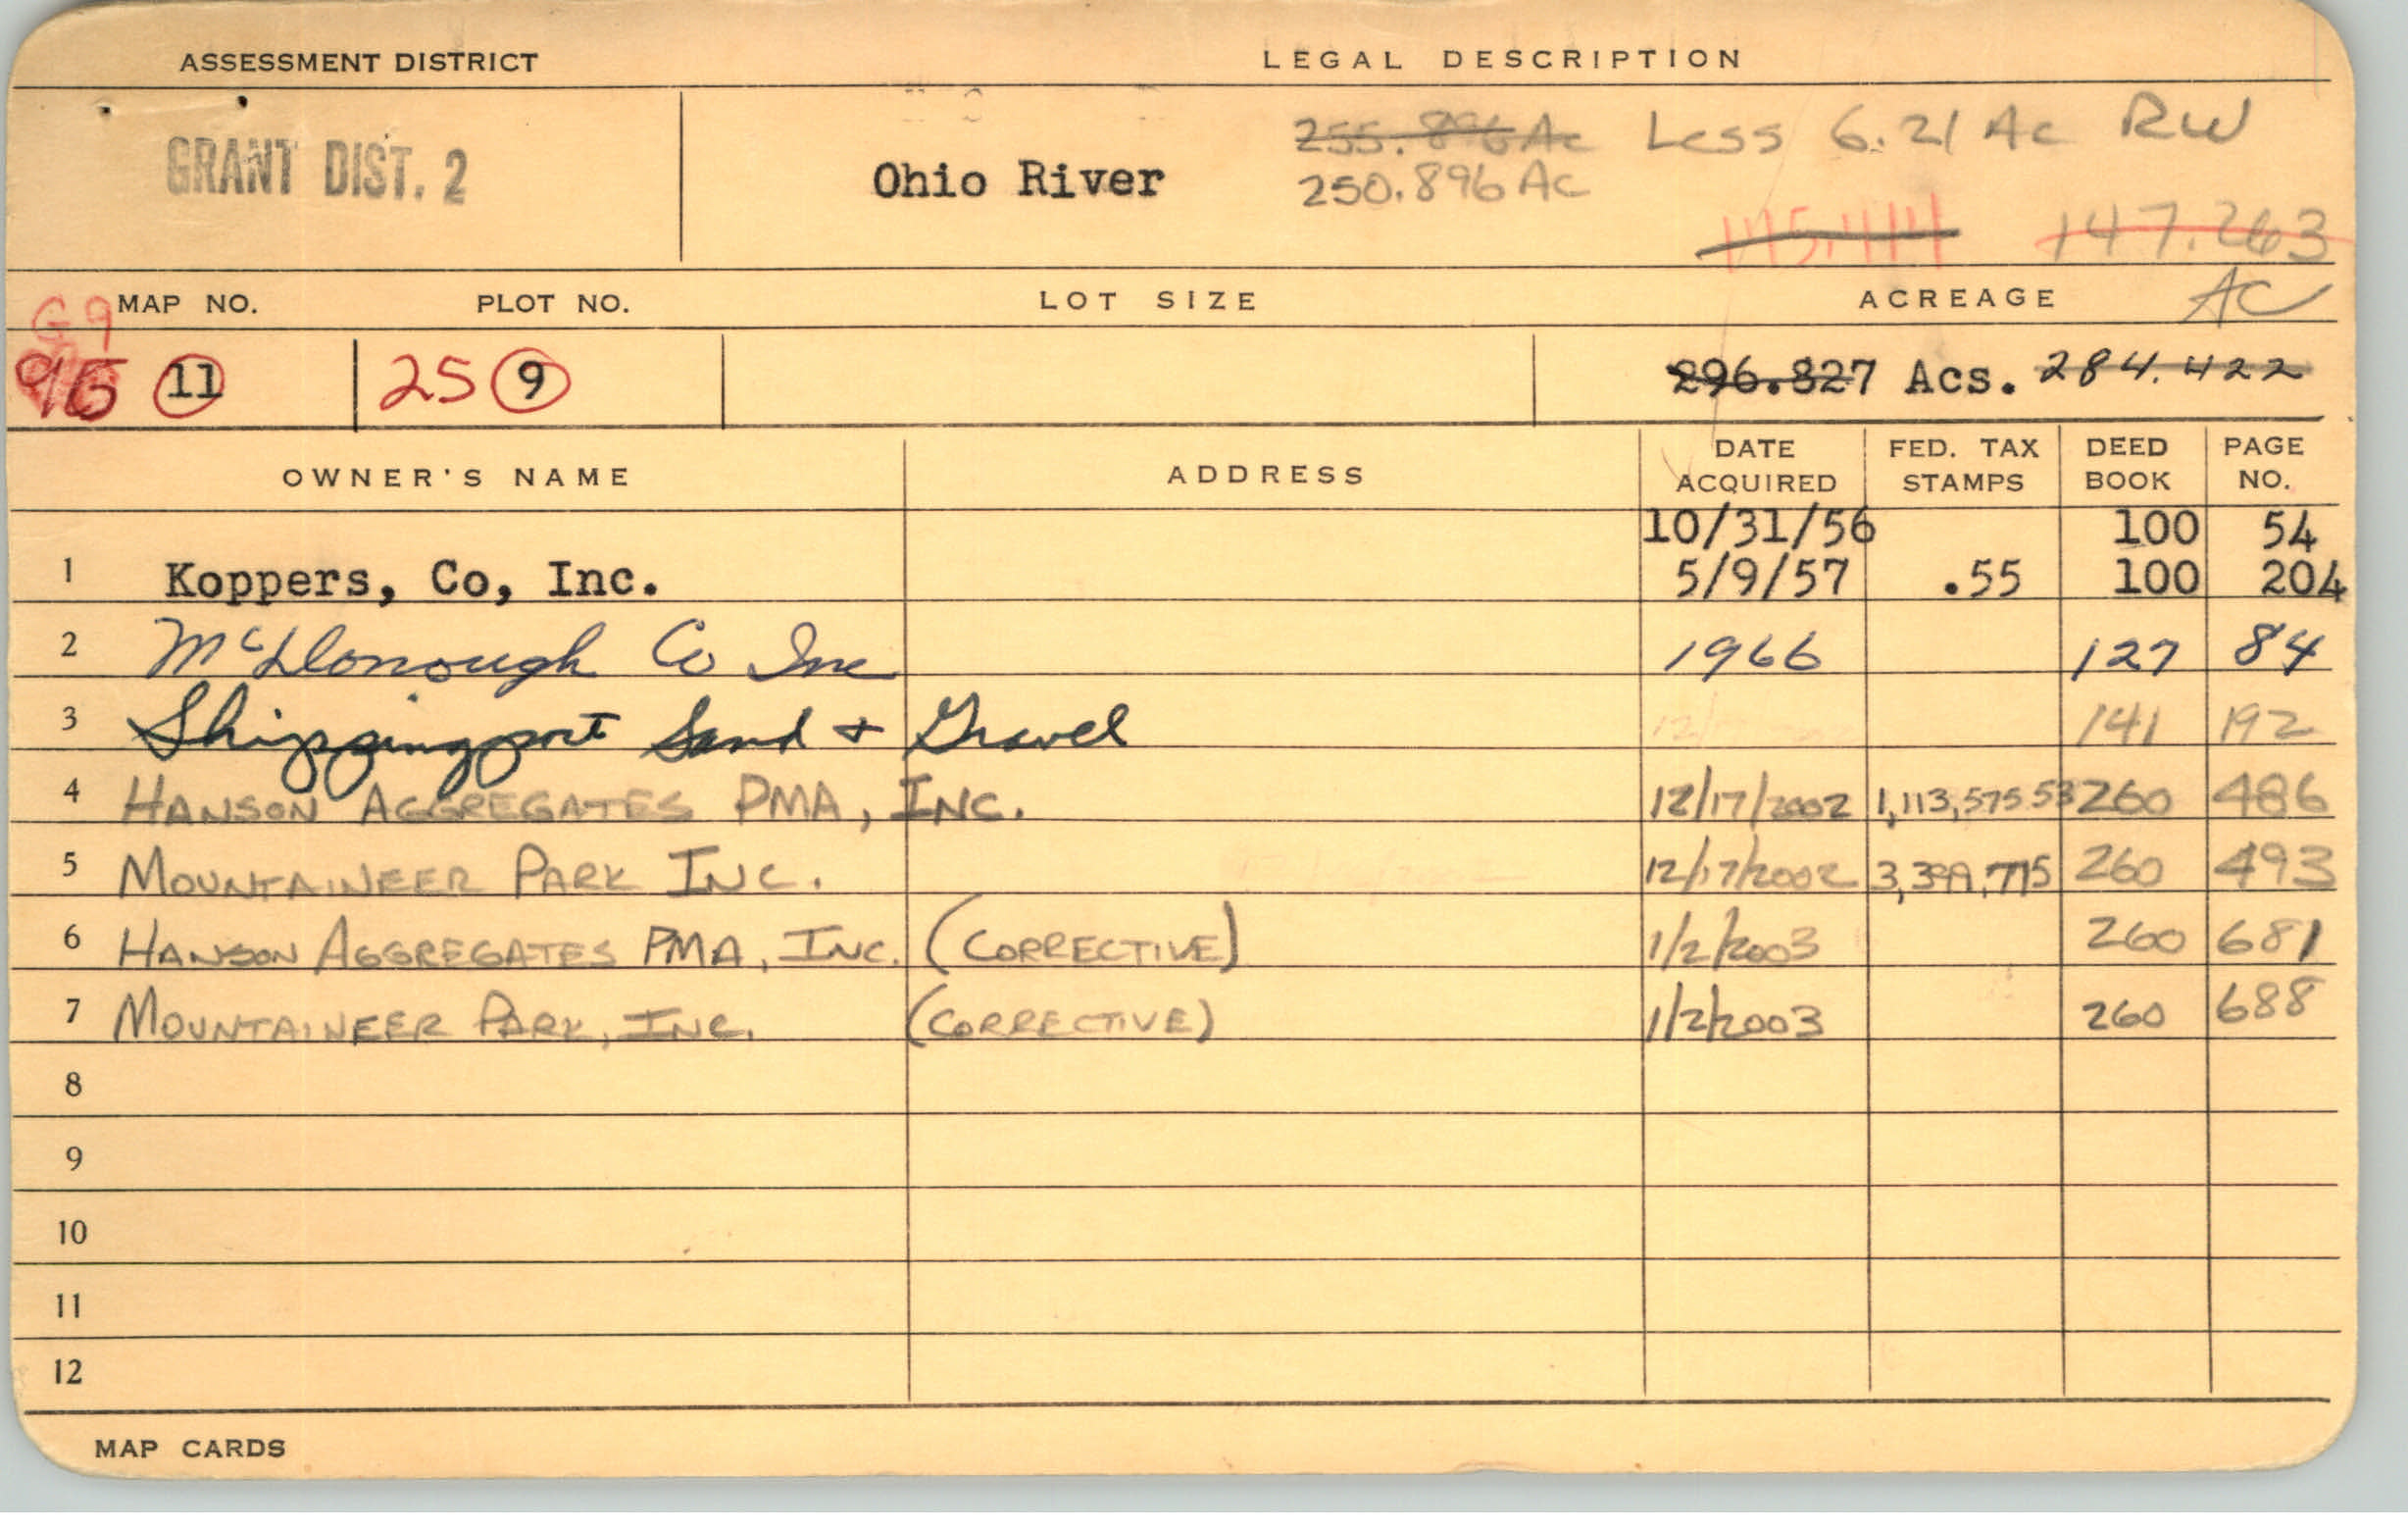 ASSESSMENT DISTRICT LEGAL DESCRIPTION
GRANT DIST. 2 Ohio River 255.896 Ac Less 6.21 Ac RW
250.896 Ac
147.263
MAP NO. PLOT NO. LOT SIZE ACREAGE AC
G9
11 25 9 296.827 Acs. 284.422
OWNER'S NAME ADDRESS DATE ACQUIRED FED. TAX STAMPS DEED BOOK PAGE NO.
10/31/56 100 54
1 Koppers, Co, Inc. 5/9/57 .55 100 204
2 McDonough Co Inc 1966 127 84
3 Shippingport Sand + Gravel 141 192
4 HANSON AGGREGATES PMA, INC. 12/17/2002 1,113,575.53 260 486
5 MOUNTAINEER PARK INC. 12/17/2002 3,399,775 260 493
6 HANSON AGGREGATES PMA, INC. (CORRECTIVE) 1/2/2003 260 681
7 MOUNTAINEER PARK, INC. (CORRECTIVE) 1/2/2003 260 688
8
9
10
11
12
MAP CARDS